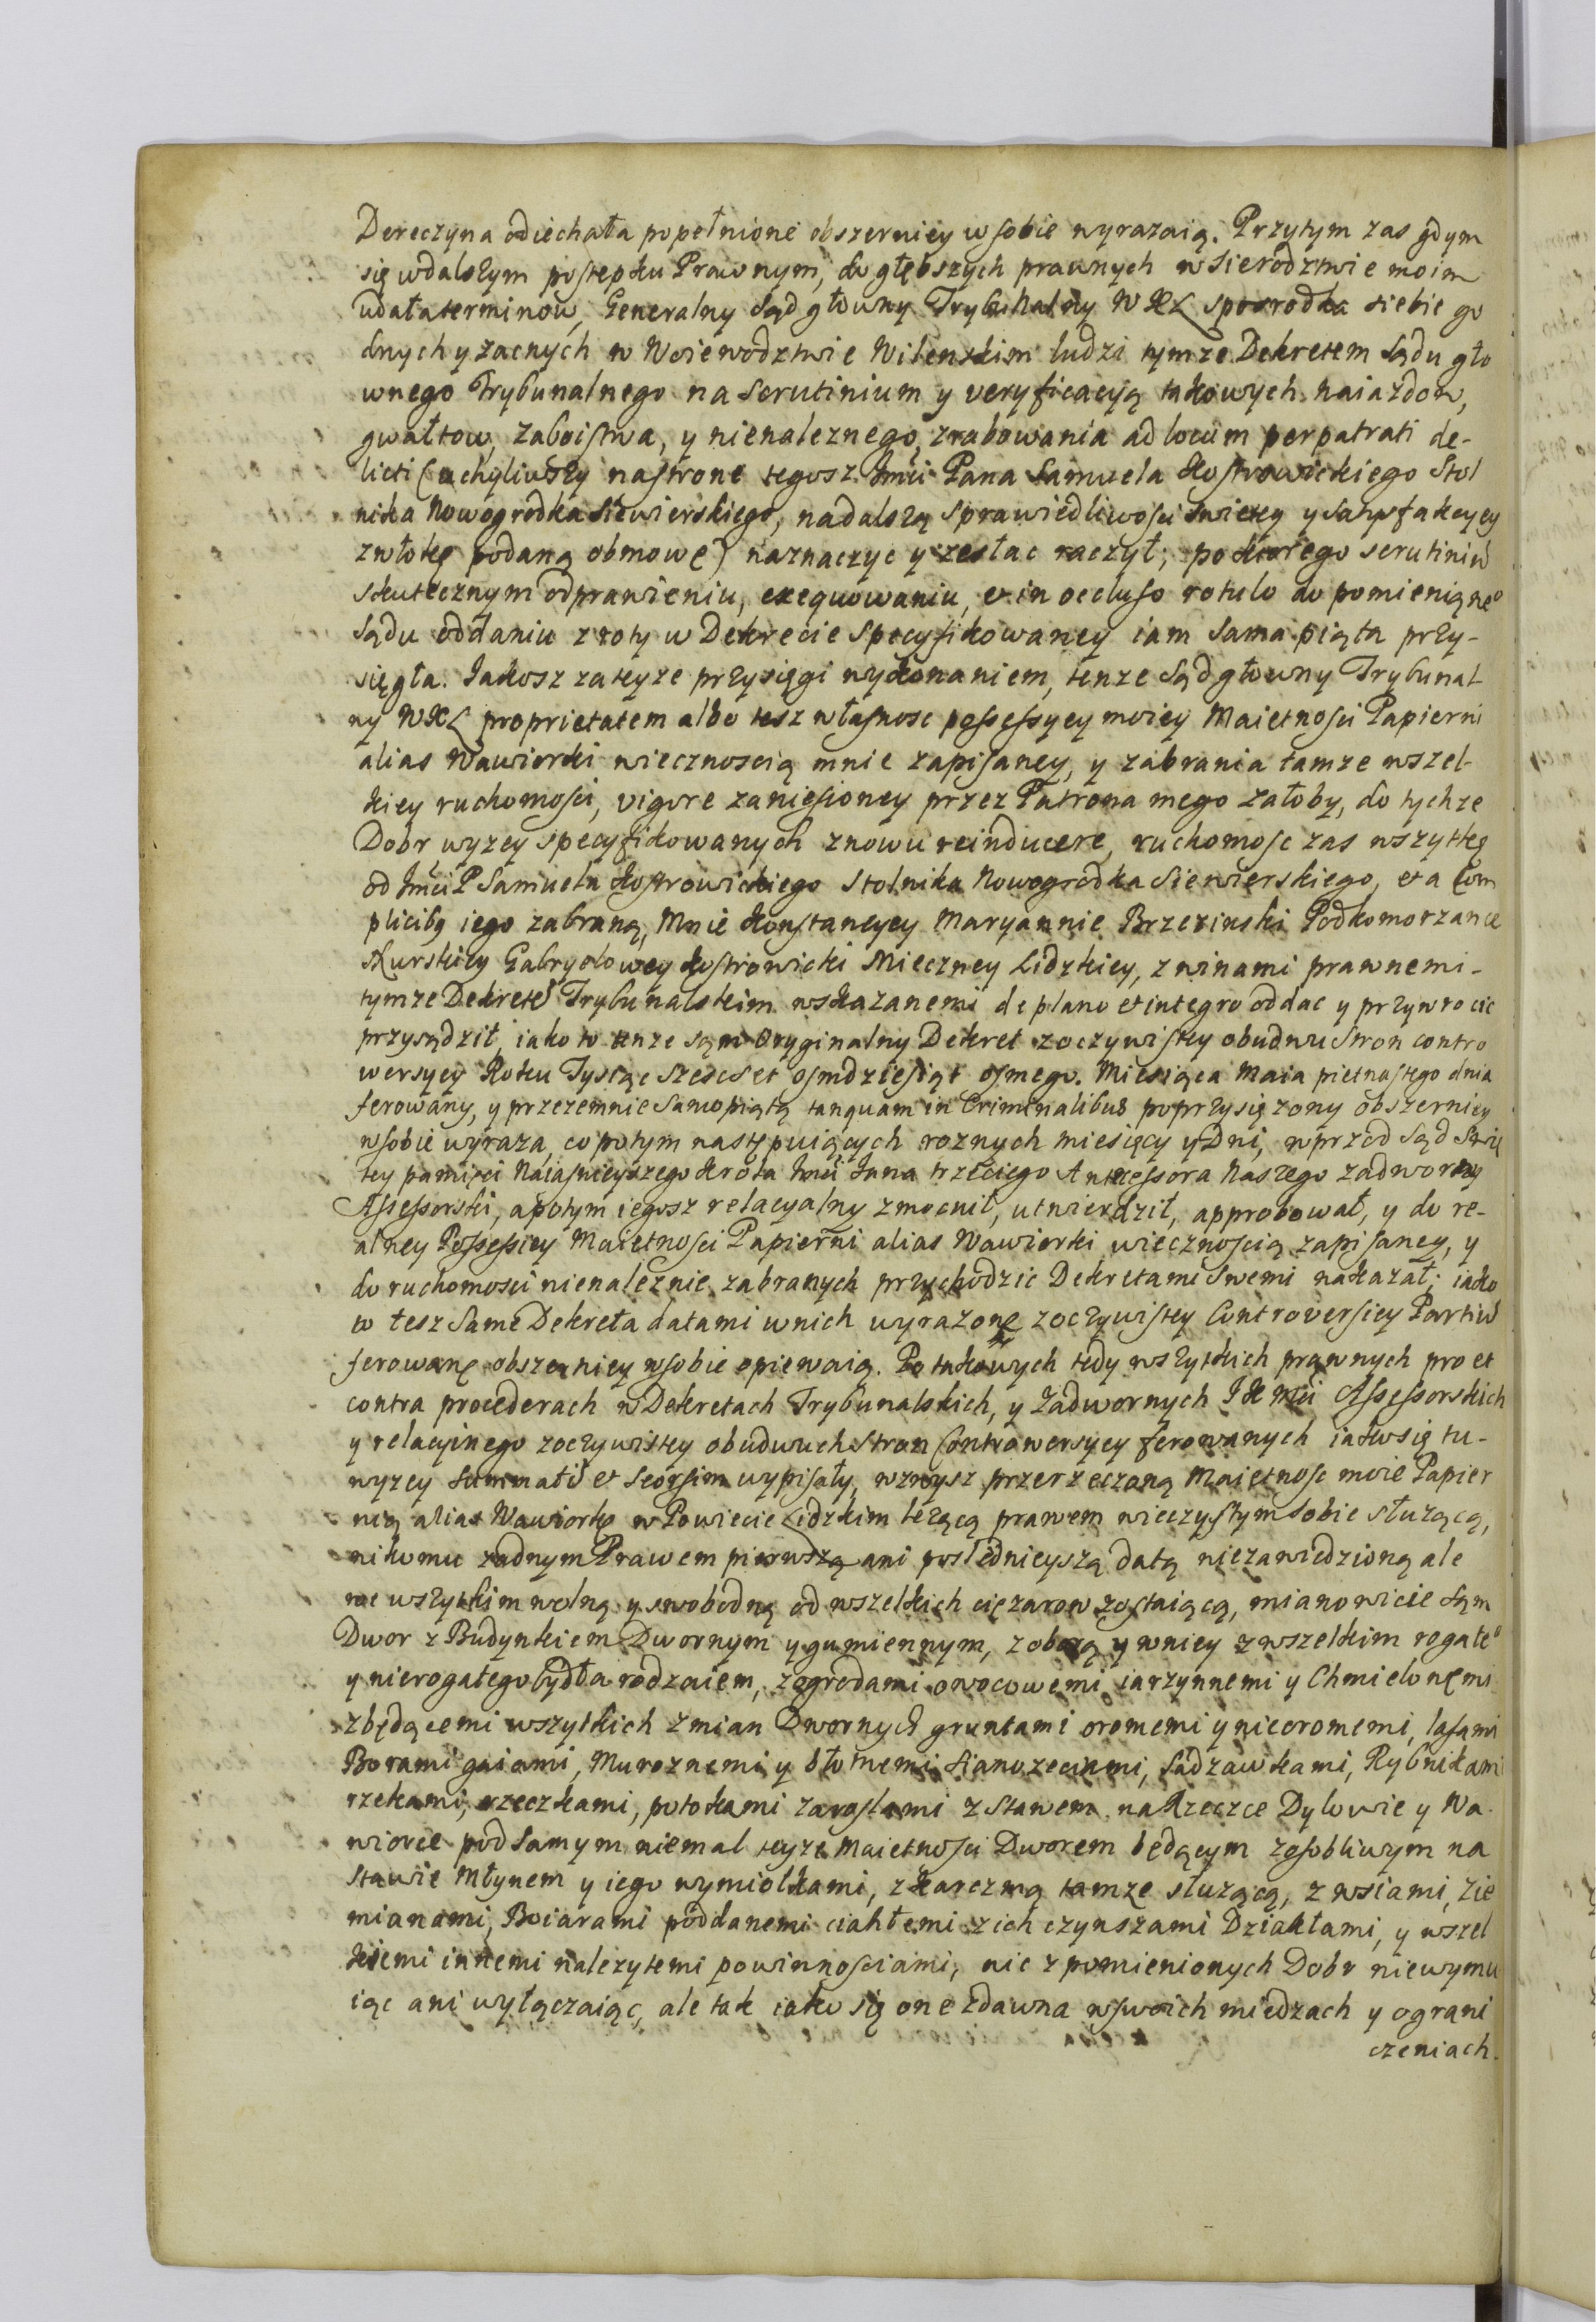 Dereczyna odiechała popełnione obszerniey w sobie wyrazaią. Przytym zas gdym
się wdalszym postępku Prawnym, do głębszych prawnych w sierodztwie moim
udała terminow, Generalny Sąd głowny Trybunalny WXL sposrodka siebie go
dnych y zacnych w Woiewodztwie Wilenskim ludzi tymze Dekretem Sądu gło
wnego Trybunalnego na Scrutinium y veryficacyą takowych naiazdow,
gwałtow, zaboistwa, y nienaleznego zrabowania ad locum perpatrati de-
licti (uchyliwszy nastronę tegosz Jmći Pana Samuela Kostrowickiego Stol
nika Nowogrodka Siewierskiego, nadalszą sprawiedliwosci Swietey y satysfakcyey
zwłokę podaną obmowę) naznaczyc y zesłac raczył; po ktorego scrutiniū
skutecznym odprawieniu, exequowaniu, et in occluso rotulo do pomieniąne°
Sądu oddaniu z roty w Dekrecie specyfikowaney iam sama piąta przy-
sięgła. Jakosz za teyze przysięgi wykonaniem, tenze Sąd głowny Trybunal
ny WXL proprietatem albo tesz własnosc possessyey moiey Maiętnosci Papierni
alias Wawiorki wiecznoscią mnie zapisaney, y zabrania tamze wszel-
kiey ruchomosci, vigore zaniesioney przez Patrona mego załoby, do tychze
Dobr wyzey specyfikowanych znowu reinducere, ruchomosc zas wszytkę
od Jmći P Samuela Kostrowickiego Stolnika Nowogrodka Siewierskiego, et a Com
plicibq iego zabraną, Mnie Konstancyey Maryannie Brzezinski Podkomorzance
Kurskiey Gabryelowey Kostrowicki Mieczney Lidzkiey, z winami prawnemi-
tymze Dekretē Trybunalskim wskazanemi de plano et integro oddac y przywrocic
przysądził, iako to tenze sąm Oryginalny Dekret zoczywistey obudwu Stron contro
wersyey Roku Tysiąc Szescset osmdziesiąt osmego. Miesiąca Maia pietnastego dnia
ferowany, y przezemnie Samopiątą tanquam in Criminalibus poprzysięzony obszerniey
w sobie wyraza, co potym następuiących roznych miesięcy y Dni, wprzod Sąd Swię
tey pamięci Naiasnieyszego Krola Jmći Jana trzeciego Antecessora Naszego zadworny
Assessorski, apotym iegosz relacyalny zmocnił, utwierdził, approbował, y do re-
alney Possessiey Maiętnosci Papierni alias Wawiorki wiecznoscią zapisaney, y
do ruchomosci nienaleznie zabranych przychodzic Dekretami Swemi nakazał; iako
to tesz Same Dekreta datami w nich wyrazone zoczywistey Controversiey Partiū
ferowane obszerniey w sobie opiewaią. Po takowych tedy wszytkich prawnych pro et
contra procederach w Dekretach Trybunalskich, y Zadwornych JK Mći Assessorskich
y relacyinego zoczywistey obudwuch Stron Controwersyey ferowanych iako się tu-
wyzey Summatī et Seorsim wypisały, wzwysz przerzeczoną Maiętnosc moię Papier
nią alias Wawiorkę w Powiecie Lidzkim lezącą prawem wieczystym Sobie słuzącą,
nikomu zadnym Prawem pierwszą ani poslednieyszą datą niezawiedzioną ale
we wszytkim wolną y swobodną od wszelkich cięzarow zostaiącą, mianowicie sąm
Dwor z Budynkiem Dwornym y gumiennym, z oborą y w niey z wszelkim rogate°
y nierogatego bydła rodzaiem, z ogrodami owocowemi iarzynnemi y Chmielowemi
zbędącemi wszytkich zmian Dwornych gruntami oromemi y nieoromemi, lasami
Borami gaiami, Muroznemi y błotnemi sianozęciami, Sadzawkami, Rybnikami
rzekami, rzeczkami, potokami zaroslami z Stawem na Rzeczce Dylowie y Wa-
wiorce pod samym niemal teyze Maiętnosci Dworem będącym z osobliwym na
stawie Młynem y iego wymiołkami, z karczmą tamze słuzącą, z wsiami, Zie
mianami, Boiarami poddanemi ciahłemi z ich czynszami Dziakłami, y wszel
kiemi innemi nalezytemi powinnosciami, nic z pomienionych Dobr niewymu
iąc ani wyłączaiąc, ale tak iako się one zdawna w swoich miedzach y ograni
czeniach.